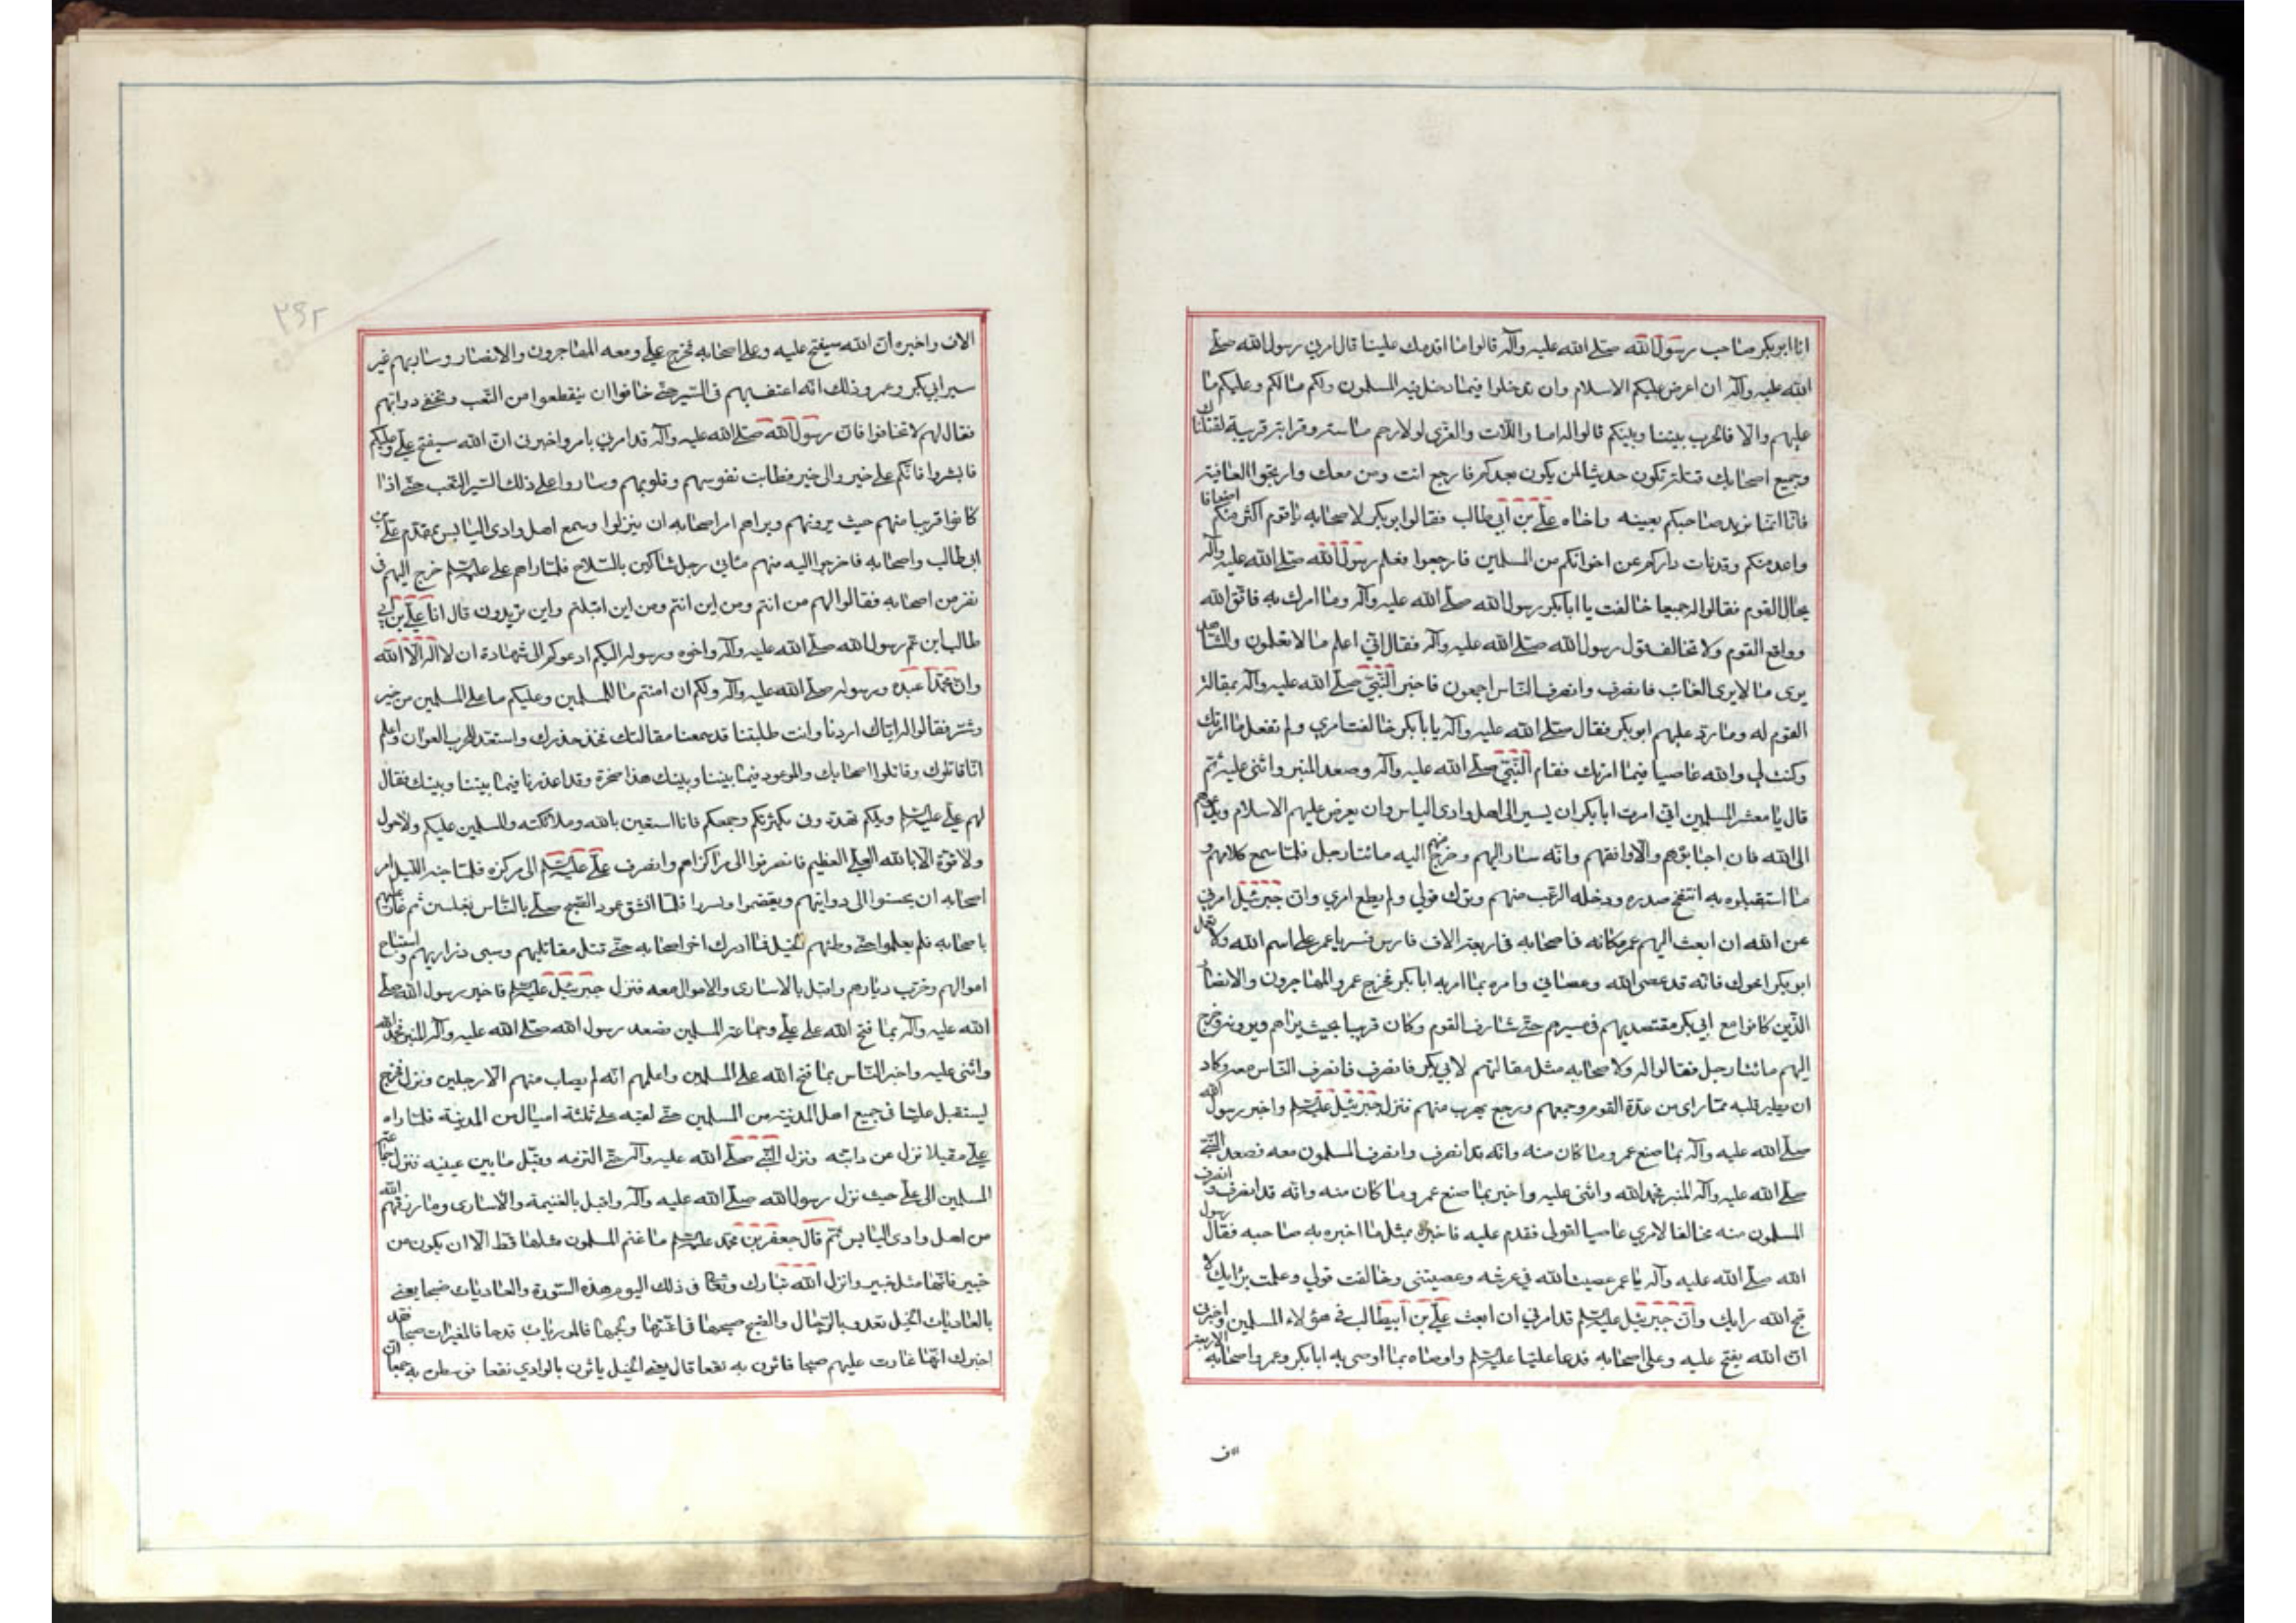 انا ابو بكر صاحب رسول الله صلى الله عليه وآله قالوا ما اقدمك علينا قال امرني رسول الله صلى
الله عليه وآله ان اعرض عليكم الاسلام وان تدخلوا فيما دخل فيه المسلمون ولكم ما لهم وعليكم ما
عليهم والا فالحرب بيننا وبينكم قالوا له اما واللات والعزى لولا رحم ماسة وقرابة قريبة لقتلناك
وجميع اصحابك قتلة تكون حديثا لمن يكون بعدكم فارجع انت ومن معك وارتجوا العافية
فانا انما نريد صاحبكم بعينه واخاه علي بن ابي طالب فقال ابو بكر لاصحابه يا قوم اكثر منكم اضعافا
واعد منكم وقد نات داركم عن اخوانكم من المسلمين فارجعوا نعلم رسول الله صلى الله عليه وآله
بحال القوم فقالوا له جميعا خالفت يا ابا بكر رسول الله صلى الله عليه وآله وما امرك به فاتق الله
وواقع القوم ولا تخالف قول رسول الله صلى الله عليه وآله فقال اني اعلم ما لا تعلمون والشاهد
يرى ما لا يرى الغائب فانصرف وانصرف الناس اجمعون فاخبر النبي صلى الله عليه وآله بمقالة
القوم له وما رد عليهم ابو بكر فقال صلى الله عليه وآله يا ابا بكر خالفت امري ولم تفعل ما امرتك
وكنت لي والله عاصيا فيما امرتك فقام النبي صلى الله عليه وآله وصعد المنبر واثنى عليه ثم
قال يا معشر المسلمين اني امرت ابا بكر ان يسير الى اهل وادي اليابس وان يعرض عليهم الاسلام ويدعوهم
الى الله فان اجابوهم والا واقفهم وانه سار اليهم وخرج منهم اليه مائتا رجل فلما سمع كلامهم و
ما استقبلوه به انتفخ صدره ودخله الرعب منهم وترك قولي ولم يطع امري وان جبرئيل امرني
عن الله ان ابعث اليهم عمر مكانه في اصحابه في اربعة الاف فارس فسر يا عمر على اسم الله ولا تعمل
ابو بكر اخوك فانه قد عصى الله وعصاني وامره بما امر به ابا بكر فخرج عمر والمهاجرون والانصار
الذين كانوا مع ابي بكر مقتصد بهم في سيرهم حتى شارف القوم وكان قريبا بحيث يراهم ويرونه وخرج
اليهم مائتا رجل فقالوا له ولاصحابه مثل مقالتهم لابي بكر فانصرف فانصرف الناس معه وكاد
ان يطير قلبه مما راى من عدة القوم وجمعهم ورجع يهرب منهم فنزل جبرئيل عليه السلم واخبر رسول الله
صلى الله عليه وآله بما صنع عمر وما كان منه وانه قد انصرف وانصرف المسلمون معه فصعد النبي
صلى الله عليه وآله المنبر فحمد الله واثنى عليه واخبر بما صنع عمر وما كان منه وانه قد انصرف وانصرف
المسلمون منه مخالفا لامري عاصيا لقولي فقدم عليه فاخبره بمثل ما اخبره به صاحبه فقال رسول
الله صلى الله عليه وآله يا عمر عصيت الله في عرشه وعصيتني وخالفت قولي وعملت برايك لا
قبح الله رايك وان جبرئيل عليه السلم قد امرني ان ابعث علي بن ابيطالب في هؤلاء المسلمين واخبرني
ان الله يفتح عليه وعلى اصحابه فدعا عليا عليه السلم واوصاه بما اوصى به ابا بكر وعمر واصحابه الاربعة
ـاف
٢٩٢
الاف واخبره ان الله سيفتح عليه وعلى اصحابه فخرج علي ومعه المهاجرون والانصار وسار بهم غير
سير ابي بكر وعمر وذلك انه اعنف بهم في السير حتى خافوا ان ينقطعوا من التعب وتحفى دوابهم
فقال لهم لا تخافوا فان رسول الله صلى الله عليه وآله قد امرني بامر واخبرني ان الله سيفتح علي وعليكم
فابشروا فانكم على خير والى خير فطابت نفوسهم وقلوبهم وساروا على ذلك السير التعب حتى اذا
كانوا قريبا منهم حيث يرونهم ويراهم امر اصحابه ان ينزلوا وسمع اهل وادي اليابس بمقدم علي بن
ابي طالب واصحابه فاخرجوا اليه منهم مائتي رجل شاكين بالسلاح فلما راهم علي عليه السلم خرج اليهم في
نفر من اصحابه فقالوا لهم من انتم ومن اين انتم ومن اين اقبلتم واين تريدون قال انا علي بن ابي
طالب ابن عم رسول الله صلى الله عليه وآله واخوه ورسوله اليكم ادعوكم الى شهادة ان لا اله الا الله
وان محمدا عبده ورسوله صلى الله عليه وآله ولكم ان امنتم ما للمسلمين وعليكم ما على المسلمين من خير
وشر فقالوا له اياك اردنا وانت طلبتنا قد سمعنا مقالتك فخذ حذرك واستعد للحرب العوان واعلم
انا قاتلوك وقاتلوا اصحابك والموعود فيما بيننا وبينك هذا ضحوة وقد اعذرنا فيما بيننا وبينك فقال
لهم علي عليه السلم ويلكم تهددوني بكثرتكم وجمعكم فانا استعين بالله وملائكته والمسلمين عليكم ولا حول
ولا قوة الا بالله العلي العظيم فانصرفوا الى مراكزهم وانصرف علي عليه السلم الى مركزه فلما جنه الليل امر
اصحابه ان يحسنوا الى دوابهم ويقضموا ويسرجوا فلما انشق عمود الصبح صلى بالناس بغلس ثم غار عليهم
باصحابه فلم يعلموا حتى وطئهم الخيل فما ادرك اخر اصحابه حتى قتل مقاتليهم وسبى ذراريهم واستباح
اموالهم وخرب ديارهم واقبل بالاسارى والاموال معه فنزل جبرئيل عليه السلم فاخبر رسول الله صلى
الله عليه وآله بما فتح الله على علي وجماعة المسلمين فصعد رسول الله صلى الله عليه وآله المنبر فحمد الله
واثنى عليه واخبر الناس بما فتح الله على المسلمين واعلمهم انه لم يصاب منهم الا رجلين ونزل فخرج
ليستقبل عليا في جميع اهل المدينة من المسلمين حتى لقيه على ثلثة اميال من المدينة فلما راه
علي مقبلا نزل عن دابته ونزل النبي صلى الله عليه وآله حتى التزمه وقبل ما بين عينيه فنزل جماعة
المسلمين الى علي حيث نزل رسول الله صلى الله عليه وآله واقبل بالغنيمة والاسارى وما رزقهم الله
من اهل وادي اليابس ثم قال جعفر بن محمد عليه السلم ما غنم المسلمون مثلها قط الا ان يكون من
خيبر فانها مثل خيبر وانزل الله تبارك وتعالى في ذلك اليوم هذه السورة والعاديات ضبحا يعني
بالعاديات الخيل تعدو بالرجال والضبح صيحها في اعنتها ولجمها فالموريات قدحا فالمغيرات صبحا فقد
اخبرك انها غارت عليهم صبحا فاثرن به نقعا قال يعني الخيل ياثرن بالوادي نقعا فوسطن به جمعا ان